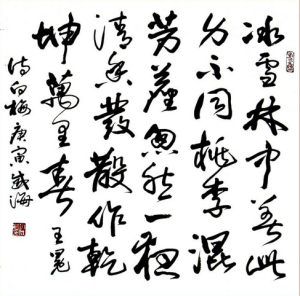 冰雪林中著此
身不同桃李混
芳塵忽然一夜
清香發散作乾
坤萬里春 王冕
詩白梅 庚寅